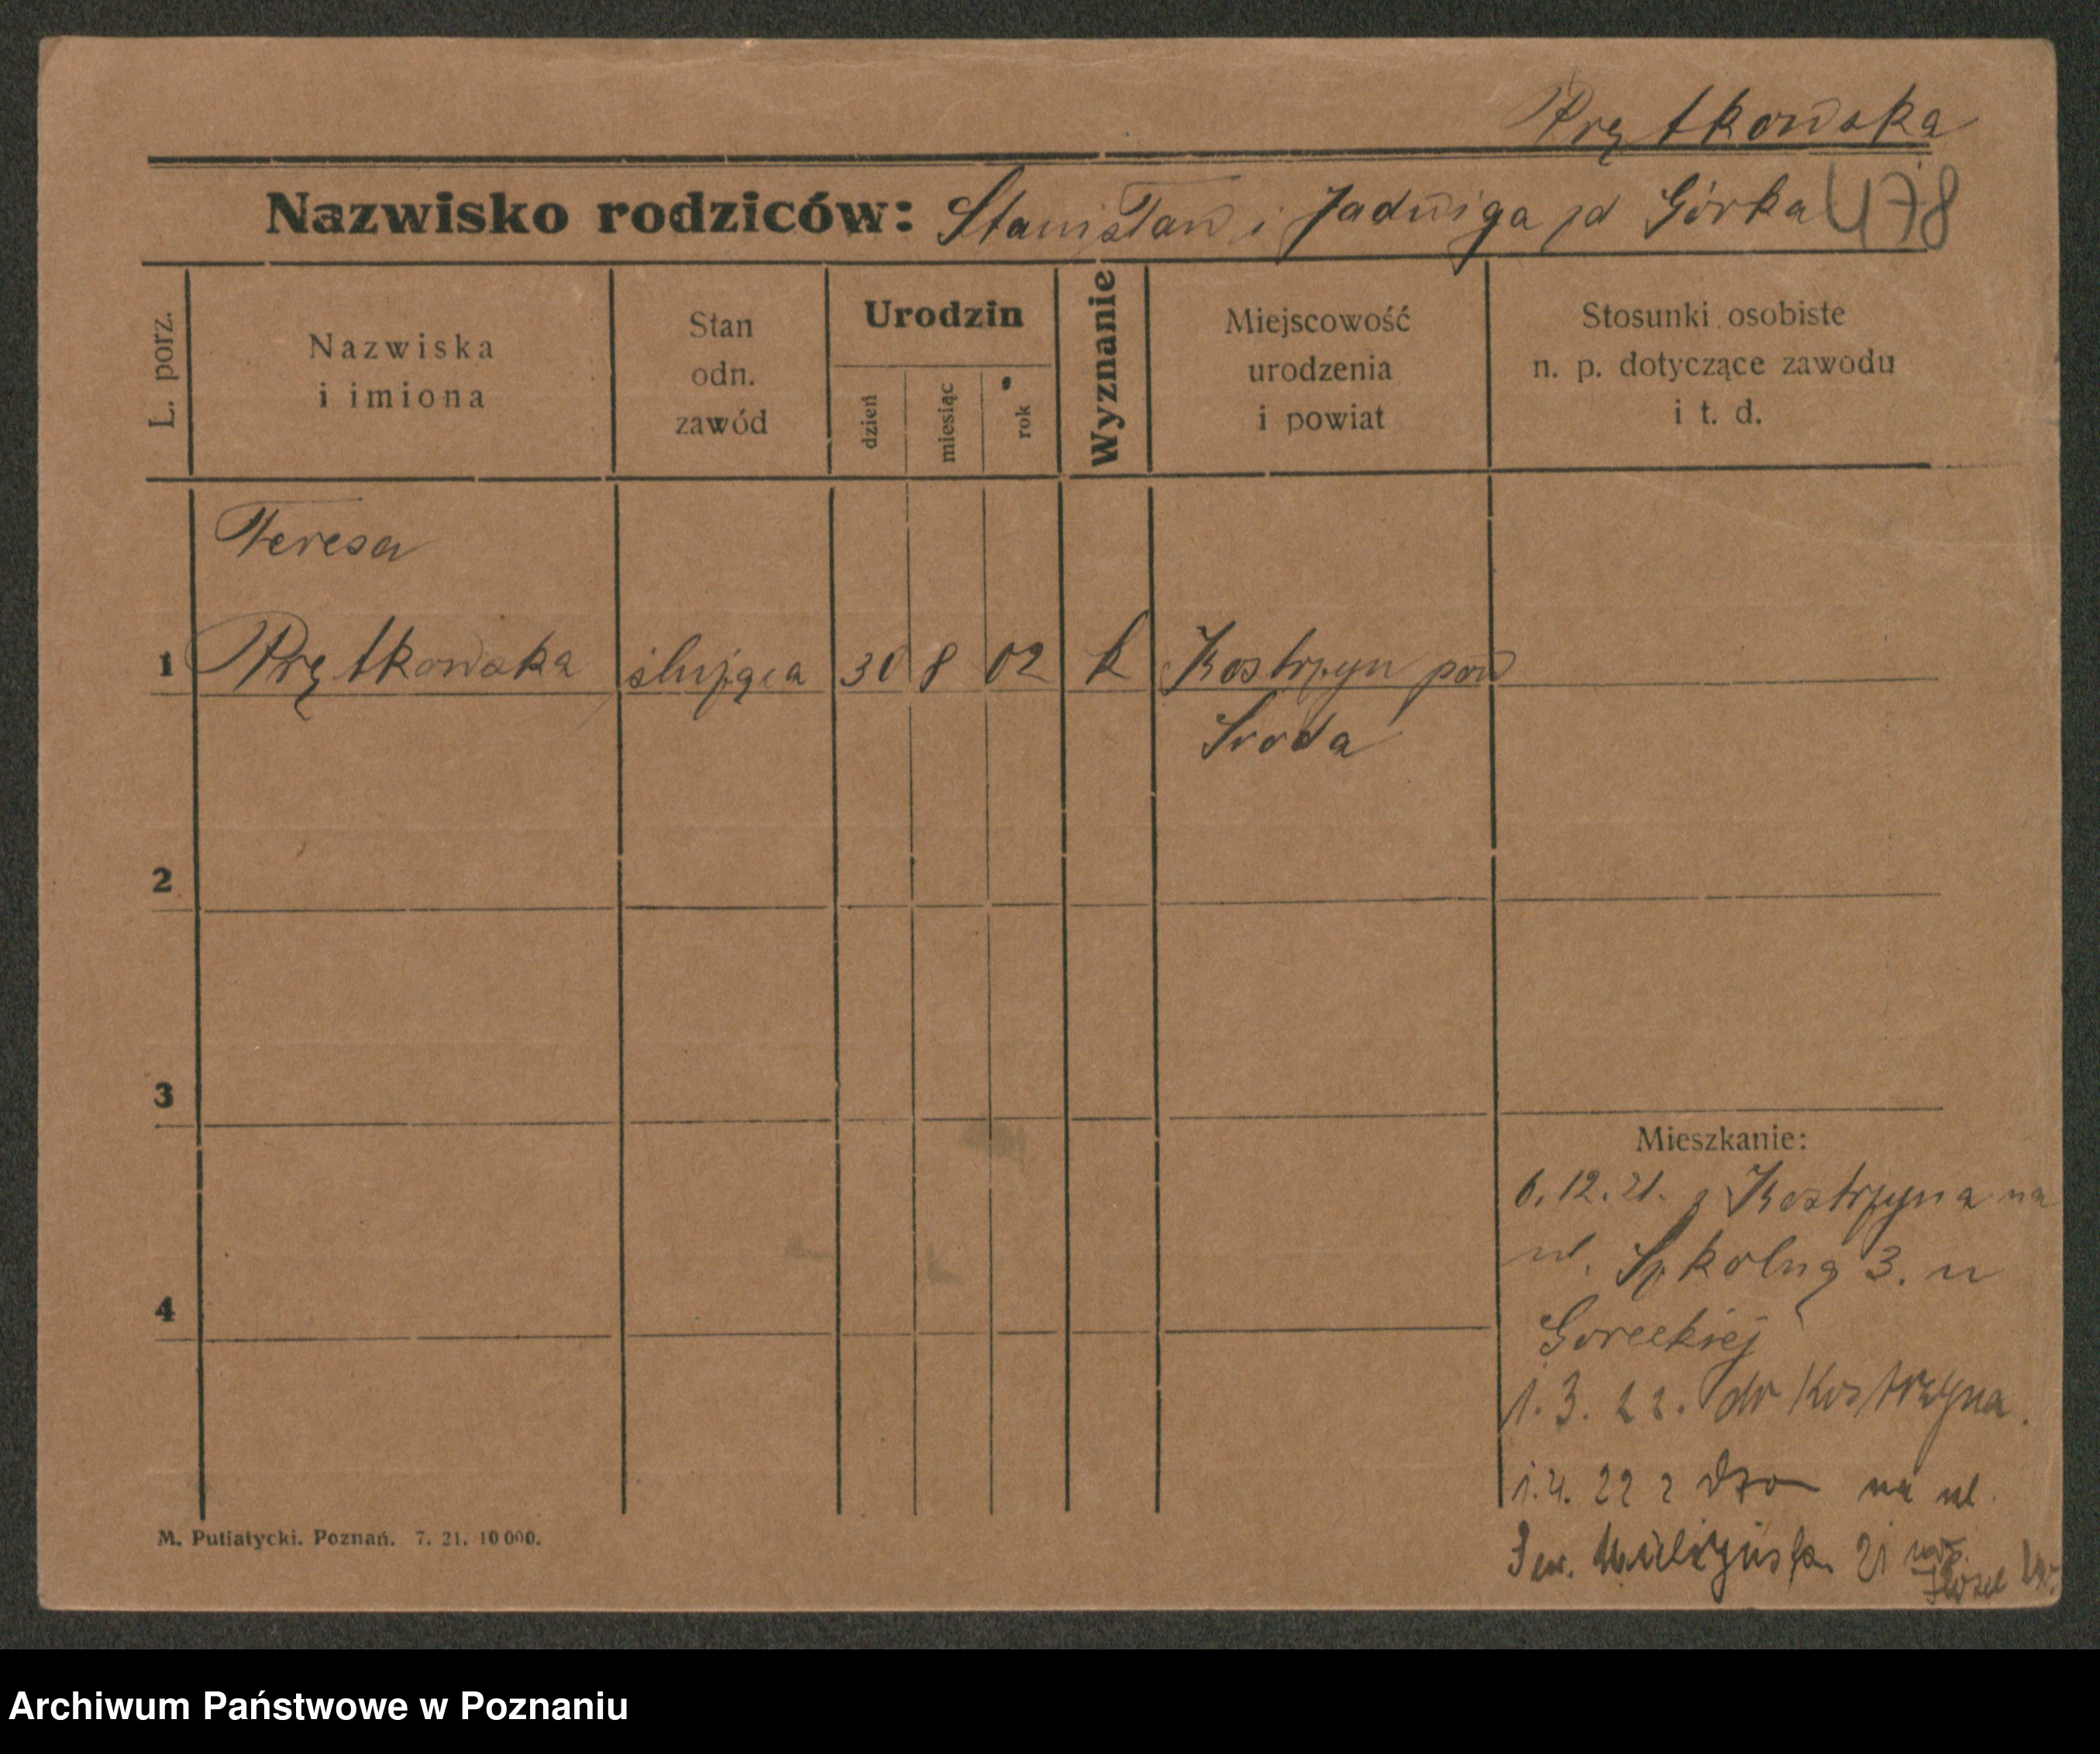 Prętkowska
Nazwisko rodziców: Stanisław i Jadwiga zd Górka 478
L. porz.
Nazwiska
i imiona
Stan
odn.
zawód
Urodzin
dzień
miesiąc
rok
Wyznanie
Miejscowość
urodzenia
i powiat
Stosunki osobiste
n. p. dotyczące zawodu
i t. d.
Teresa
1 Prętkowska służąca 30 8 02 k Kostrzyn pow
Sroda
2
3
Mieszkanie:
6.12.21. z Kostrzyna na
ul. Szkolną 3. u
4
Goreckiej
1. 3. 22. do Kostrzyna.
1.4. 22 z na ul.
21
M. Putiatycki. Poznań. 7. 21. 10 000.
Archiwum Państwowe w Poznaniu